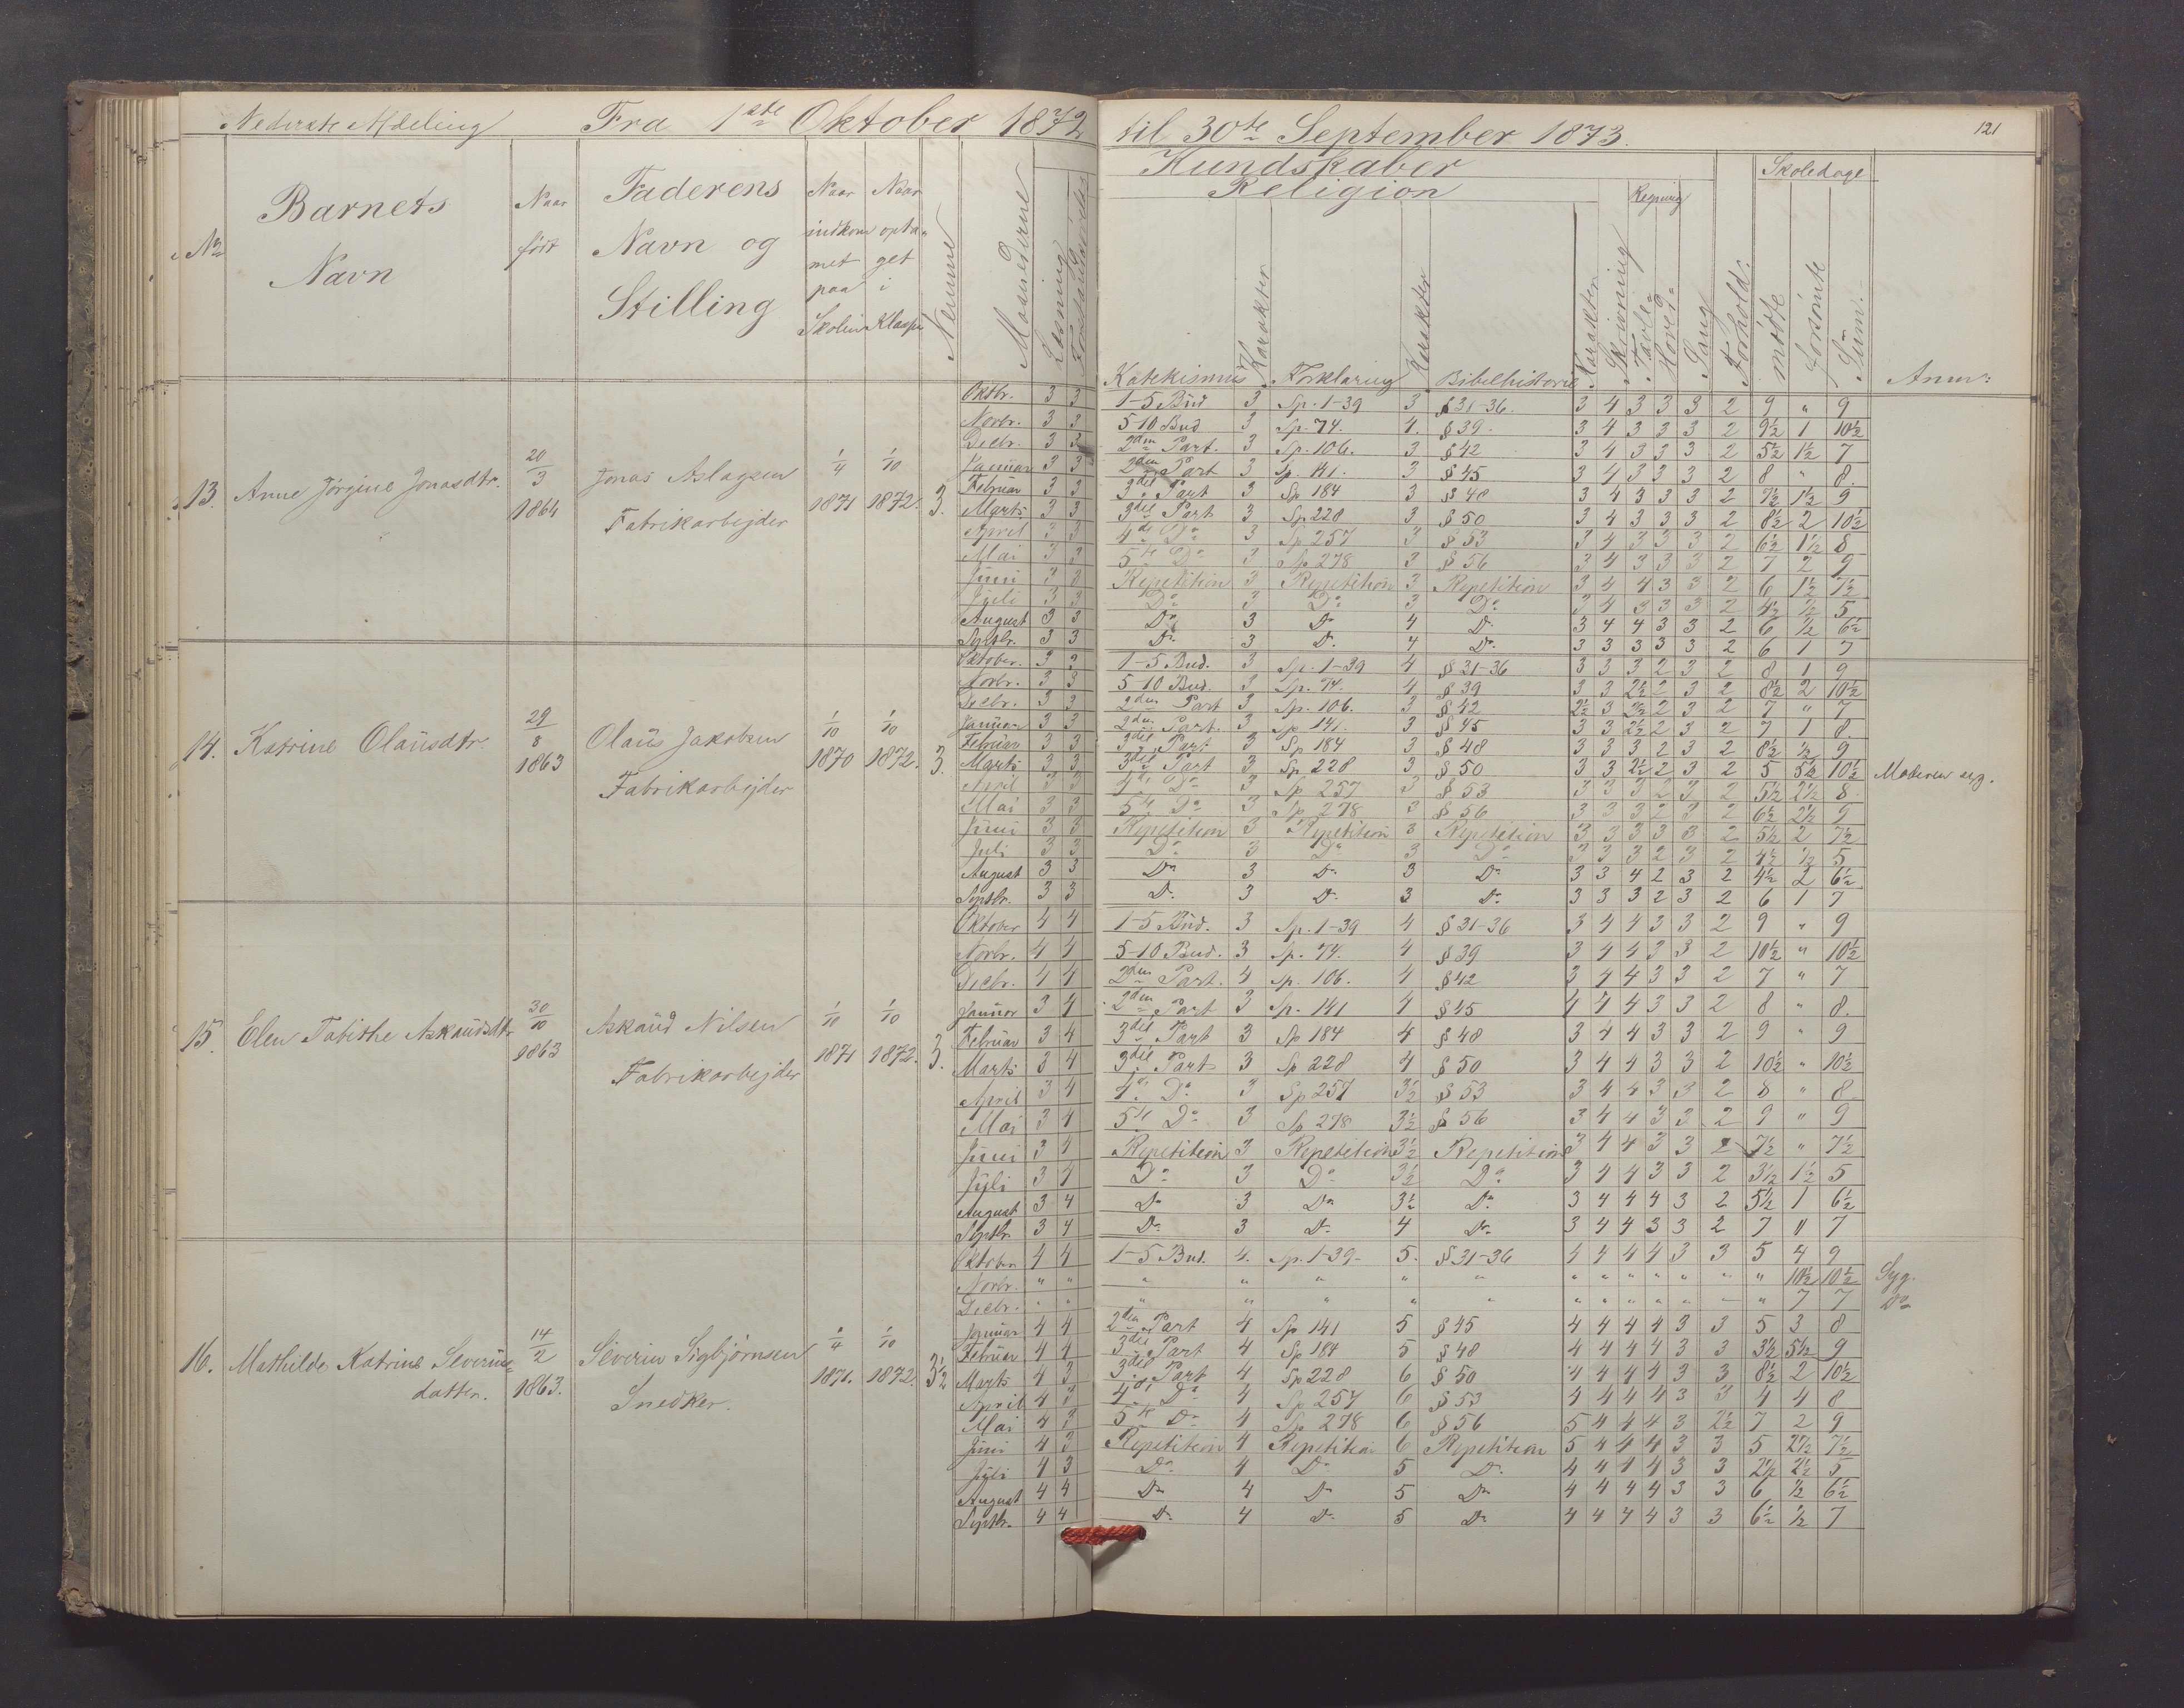 Nederste Afdeling Fra 1ste Oktober 1872 til 30te September 1873. 121
Kundskaber
Religion Regning Skoledage
No Barnets Navn Naar født Faderens Navn og Stilling Naar indkommet paa Skolen Naar optaget i Klassen Nemme Maanederne Læsning Forstand
Katekismus Karakter Forklaring Karakter Bibelhistorie Karakter Skrivning Tavle- Hoved- Sang Forhold: mødte Forsømte Sum. Anm:
13. Anne Jørgine Jonasdtr. 20/3 1864 Jonas Aslagsen Fabrikarbejder 1/4 1871 1/10 1872. 3.
Oktbr. 3 3 1-5 Bud 3 Sp. 1-39 3 § 31-36. 3 4 3 3 3 2 9 " 9
Novbr. 3 3 5-10 Bud 3 Sp. 74. 4. § 39. 3 4 3 3 3 2 9½ 1 10½
Decbr. 3 3 2den Part. 3 Sp. 106. 3 § 42 3 4 3 3 3 2 5½ 1½ 7
Januar 3 3 2den Part 3 Sp. 141. 3 § 45 3 4 3 3 3 2 8 " 8.
Februar 3 3 3die Part 3 Sp 184 3 § 48 3 4 3 3 3 2 7½ 1½ 9
Marts 3 3 3die Part 3 Sp 228 3 § 50 3 4 3 3 3 2 8½ 2 10½
April 3 3 4de Do 3 Sp 257 3 § 53 3 4 3 3 3 2 6½ 1½ 8
Mai 3 3 5te Do 3 Sp 278 3 § 56 3 4 3 3 3 2 7 2 9
Juni 3 3 Repetition 3 Repetition 3 Repetition 3 4 4 3 3 2 6 1½ 7½
Juli 3 3 Do 3 Do 3 Do 3 4 3 3 3 2 4½ ½ 5
August 3 3 Do 3 Do 4 Do 3 4 4 3 3 2 6 ½ 6½
Septbr. 3 3 Do 3 Do 4 Do 3 3 3 3 3 2 6 1 7
14. Katrine Olausdtr. 29/8 1863 Olaus Jakobsen Fabrikarbejder 1/10 1870 1/10 1872. 3.
Oktober. 3 3 1-5 Bud. 3 Sp. 1-39 4 § 31-36 3 3 3 2 3 2 8 1 9
Novbr. 3 3 5-10 Bud. 3 Sp. 74. 4 § 39 3 3 2½ 2 3 2 8½ 2 10½
Decbr. 3 3 2den Part 3 Sp. 106. 3 § 42 2½ 3 2½ 2 3 2 7 " 7
Januar 3 3 2den Part. 3 Sp 141. 3 § 45 3 3 2½ 2 3 2 7 1 8.
Februar 3 3 3die Part 3 Sp 184 3 § 48 3 3 3 2 3 2 8½ ½ 9
Marts 3 3 3die Part 3 Sp 228 3 § 50 3 3 2½ 2 3 2 5 5½ 10½ Moderen syg.
April 3 3 4de Do 3 Sp 257 3 § 53 3 3 3 2 3 2 5½ 2½ 8
Mai 3 3 5te Do 3 Sp 278 3 § 56 3 3 3 2 3 2 6½ 2½ 9
Juni 3 3 Repetition 3 Repetition 3 Repetition 3 3 3 3 3 2 5½ 2 7½
Juli 3 3 Do 3 Do 3 Do 3 3 3 2 3 2 4½ ½ 5
August 3 3 Do 3 Do 3 Do 3 3 4 2 3 2 4½ 2 6½
Septbr. 3 3 Do 3 Do 3 Do 3 3 3 2 3 2 6 1 7
15. Elen Tabithe Askaudsdtr 30/10 1863 Askaud Nilsen Fabrikarbejder 1/10 1871 1/10 1872. 3.
Oktober 4 4 1-5 Bud. 3 Sp. 1-39 4 § 31-36 3 4 4 3 3 2 9 " 9
Novbr. 4 4 5-10 Bud. 3 Sp. 74. 4 § 39 3 4 4 3 3 2 10½ " 10½
Decbr. 4 4 2den Part. 4 Sp. 106. 4 § 42 3 4 4 3 3 2 7 " 7
Januar 3 4 2den Part 3 Sp. 141 4 § 45 4 4 4 3 3 2 8 " 8.
Februar 3 4 3die Part 3 Sp 184 4 § 48 3 4 4 3 3 2 9 " 9
Marts 3 4 3die Part 3 Sp 228 4 § 50 3 4 4 3 3 2 10½ " 10½
April 3 4 4de Do 3 Sp 257 3½ § 53 3 4 4 3 3 2 8 " 8
Mai 3 4 5te Do 3 Sp 278 3½ § 56 3 4 4 3 3 2 9 " 9
Juni 3 4 Repetition 3 Repetition 3½ Repetition 3 4 4 3 3 2 7½ " 7½
Juli 3 4 Do 3 Do 3½ Do 3 4 4 3 3 2 3½ 1½ 5
August 3 4 Do 3 Do 3½ Do 3 4 4 4 3 2 5½ 1 6½
Septbr. 3 4 Do 3 Do 4 Do 3 4 4 3 3 2 7 " 7
16. Mathilde Katrine Severinsdatter. 14/2 1863. Severin Sigbjørnsen Snedker. 1/4 1871. 1/10 1872. 3½
Oktober 4 4 1-5 Bud. 4. Sp. 1-39- 5. § 31-36 4 4 4 4 3 3 5 4 9
Novbr. " " " " " " " " " " " " " " 10½ 10½ Syg.
Decbr. " " " " " " " " " " " " " " 7 7 Do
Januar 4 4 2den Part 4 Sp 141 5 § 45 4 4 4 4 3 3 5 3 8
Februar 4 4 3die Part 4 Sp 184 5 § 48 4 4 4 4 3 3 3½ 5½ 9
Marts 4 3 3die Part 4 Sp 228 6 § 50 4 4 4 4 3 3 8½ 2 10½
April 4 3 4de Do 4 Sp 257 6 § 53 4 4 4 4 3 3 4 4 8
Mai 4 3 5te Do 4 Sp 278 6 § 56 5 4 4 4 3 2½ 7 2 9
Juni 4 3 Repetition 4 Repetition 6 Repetition 5 4 4 4 3 3 5 2½ 7½
Juli 4 3 Do 4 Do 5 Do 4 4 4 4 3 3 2½ 2½ 5
August 4 4 Do 4 Do 5 Do 4 4 4 4 3 3 6 ½ 6½
Septbr. 4 4 Do 4 Do 5 Do 4 4 4 4 3 3 6½ ½ 7